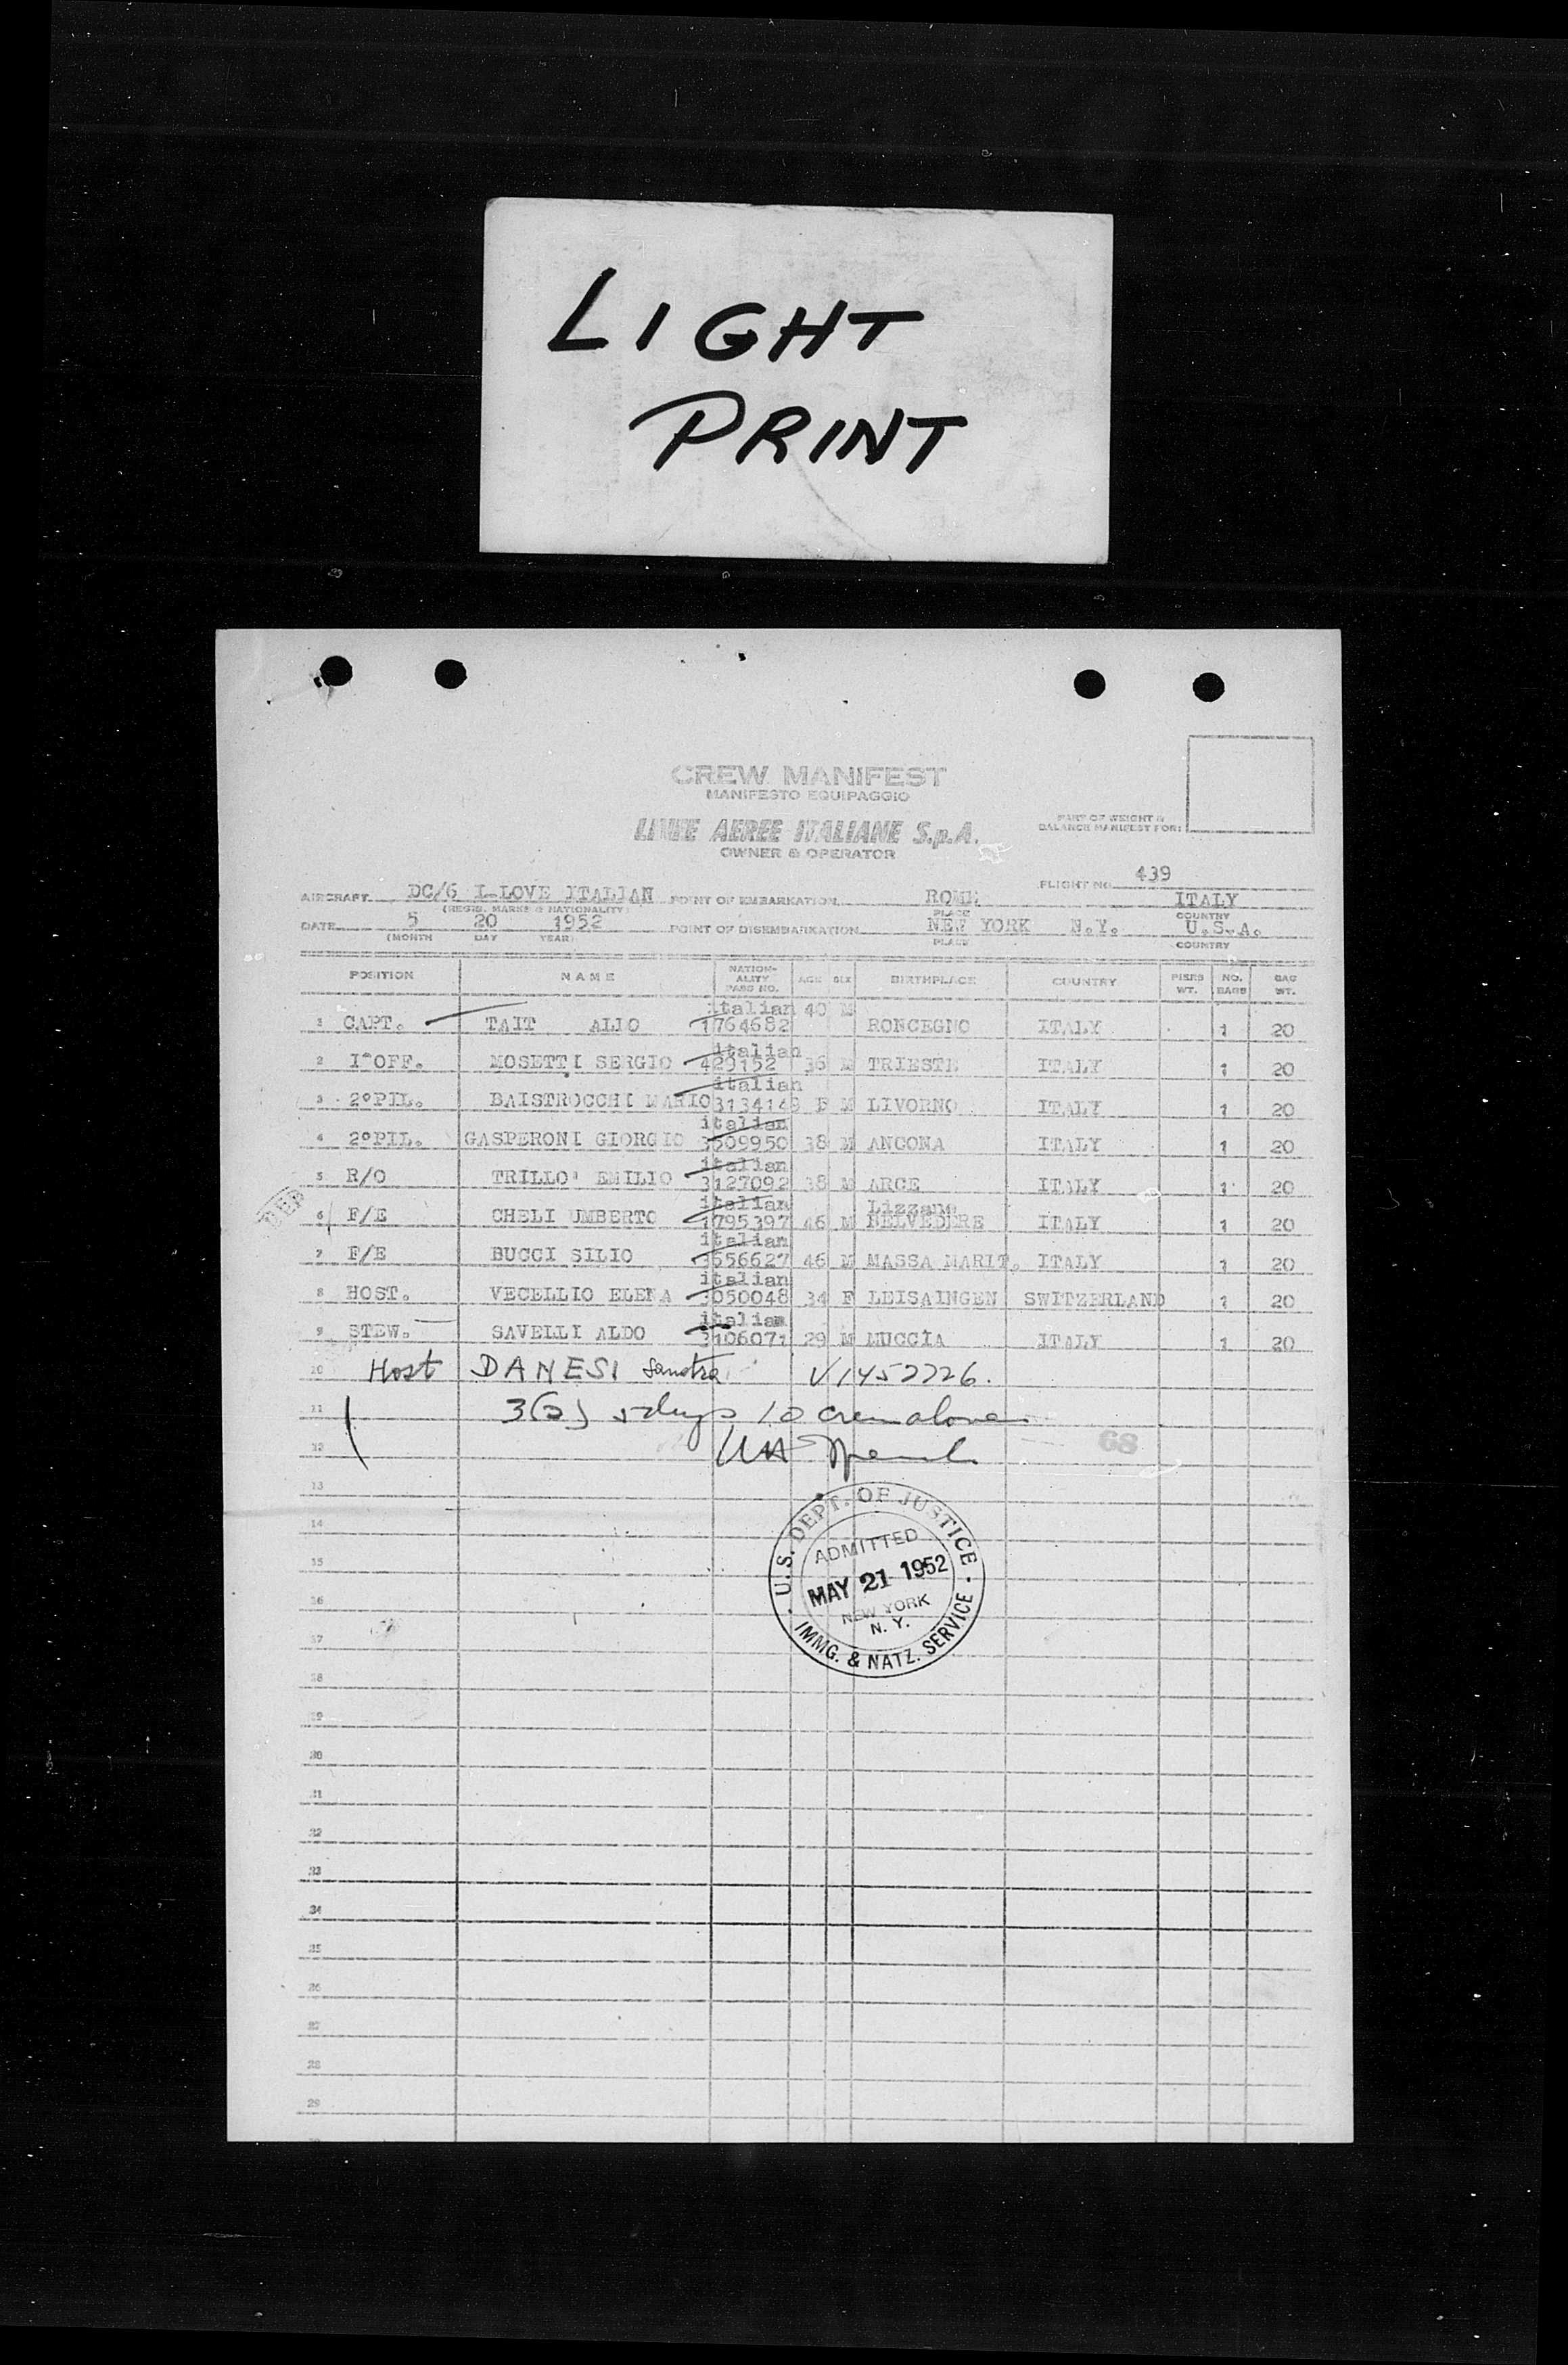 LIGHT
PRINT
CREW MANIFEST
MANIFESTO EQUIPAGGIO
LINEE AEREE ITALIANE S.p.A.
OWNER & OPERATOR
PART OF WEIGHT &
BALANCE MANIFEST FOR:
AIRCRAFT DC/6 I-LOVE ITALIAN POINT OF EMBARKATION ROME ITALY FLIGHT NO. 439
(REGIS. MARKS & NATIONALITY) PLACE COUNTRY
DATE 5 20 1952 POINT OF DISEMBARKATION NEW YORK N.Y. U.S.A.
(MONTH DAY YEAR) PLACE COUNTRY
POSITION NAME NATION-ALITY PASS NO. AGE SEX BIRTHPLACE COUNTRY PSERS WT. NO. BAGS BAG WT.
1 CAPT. TAIT ALIO italian 1764682 40 M RONCEGNO ITALY 1 20
2 I°OFF. MOSETTI SERGIO italian 429152 36 M TRIESTE ITALY 1 20
3 2°PIL. BAISTROCCHI MARIO italian M LIVORNO ITALY 1 20
4 2°PIL. GASPERONI GIORGIO italian 3509950 38 M ANCONA ITALY 1 20
5 R/O TRILLO' EMILIO italian 3127092 38 M ARCE ITALY 1 20
6 F/E CHELI UMBERTO italian 1795397 46 M Lizzano BELVEDERE ITALY 1 20
7 F/E BUCCI SILIO italian 3556627 46 M MASSA MARIT. ITALY 1 20
8 HOST. VECELLIO ELENA italian 3050048 34 F LEISAINGEN SWITZERLAND 1 20
9 STEW. SAVELLI ALDO italian 3106071 29 M MUCCIA ITALY 1 20
10 Host DANESI Sandra V1452226.
11 3(5) 5 days 10 crew above
12 68
13
14
15
16
17
18
19
20
21
22
23
24
25
26
27
28
29
U.S. DEPT. OF JUSTICE
ADMITTED
MAY 21 1952
NEW YORK
N. Y.
IMMG. & NATZ. SERVICE